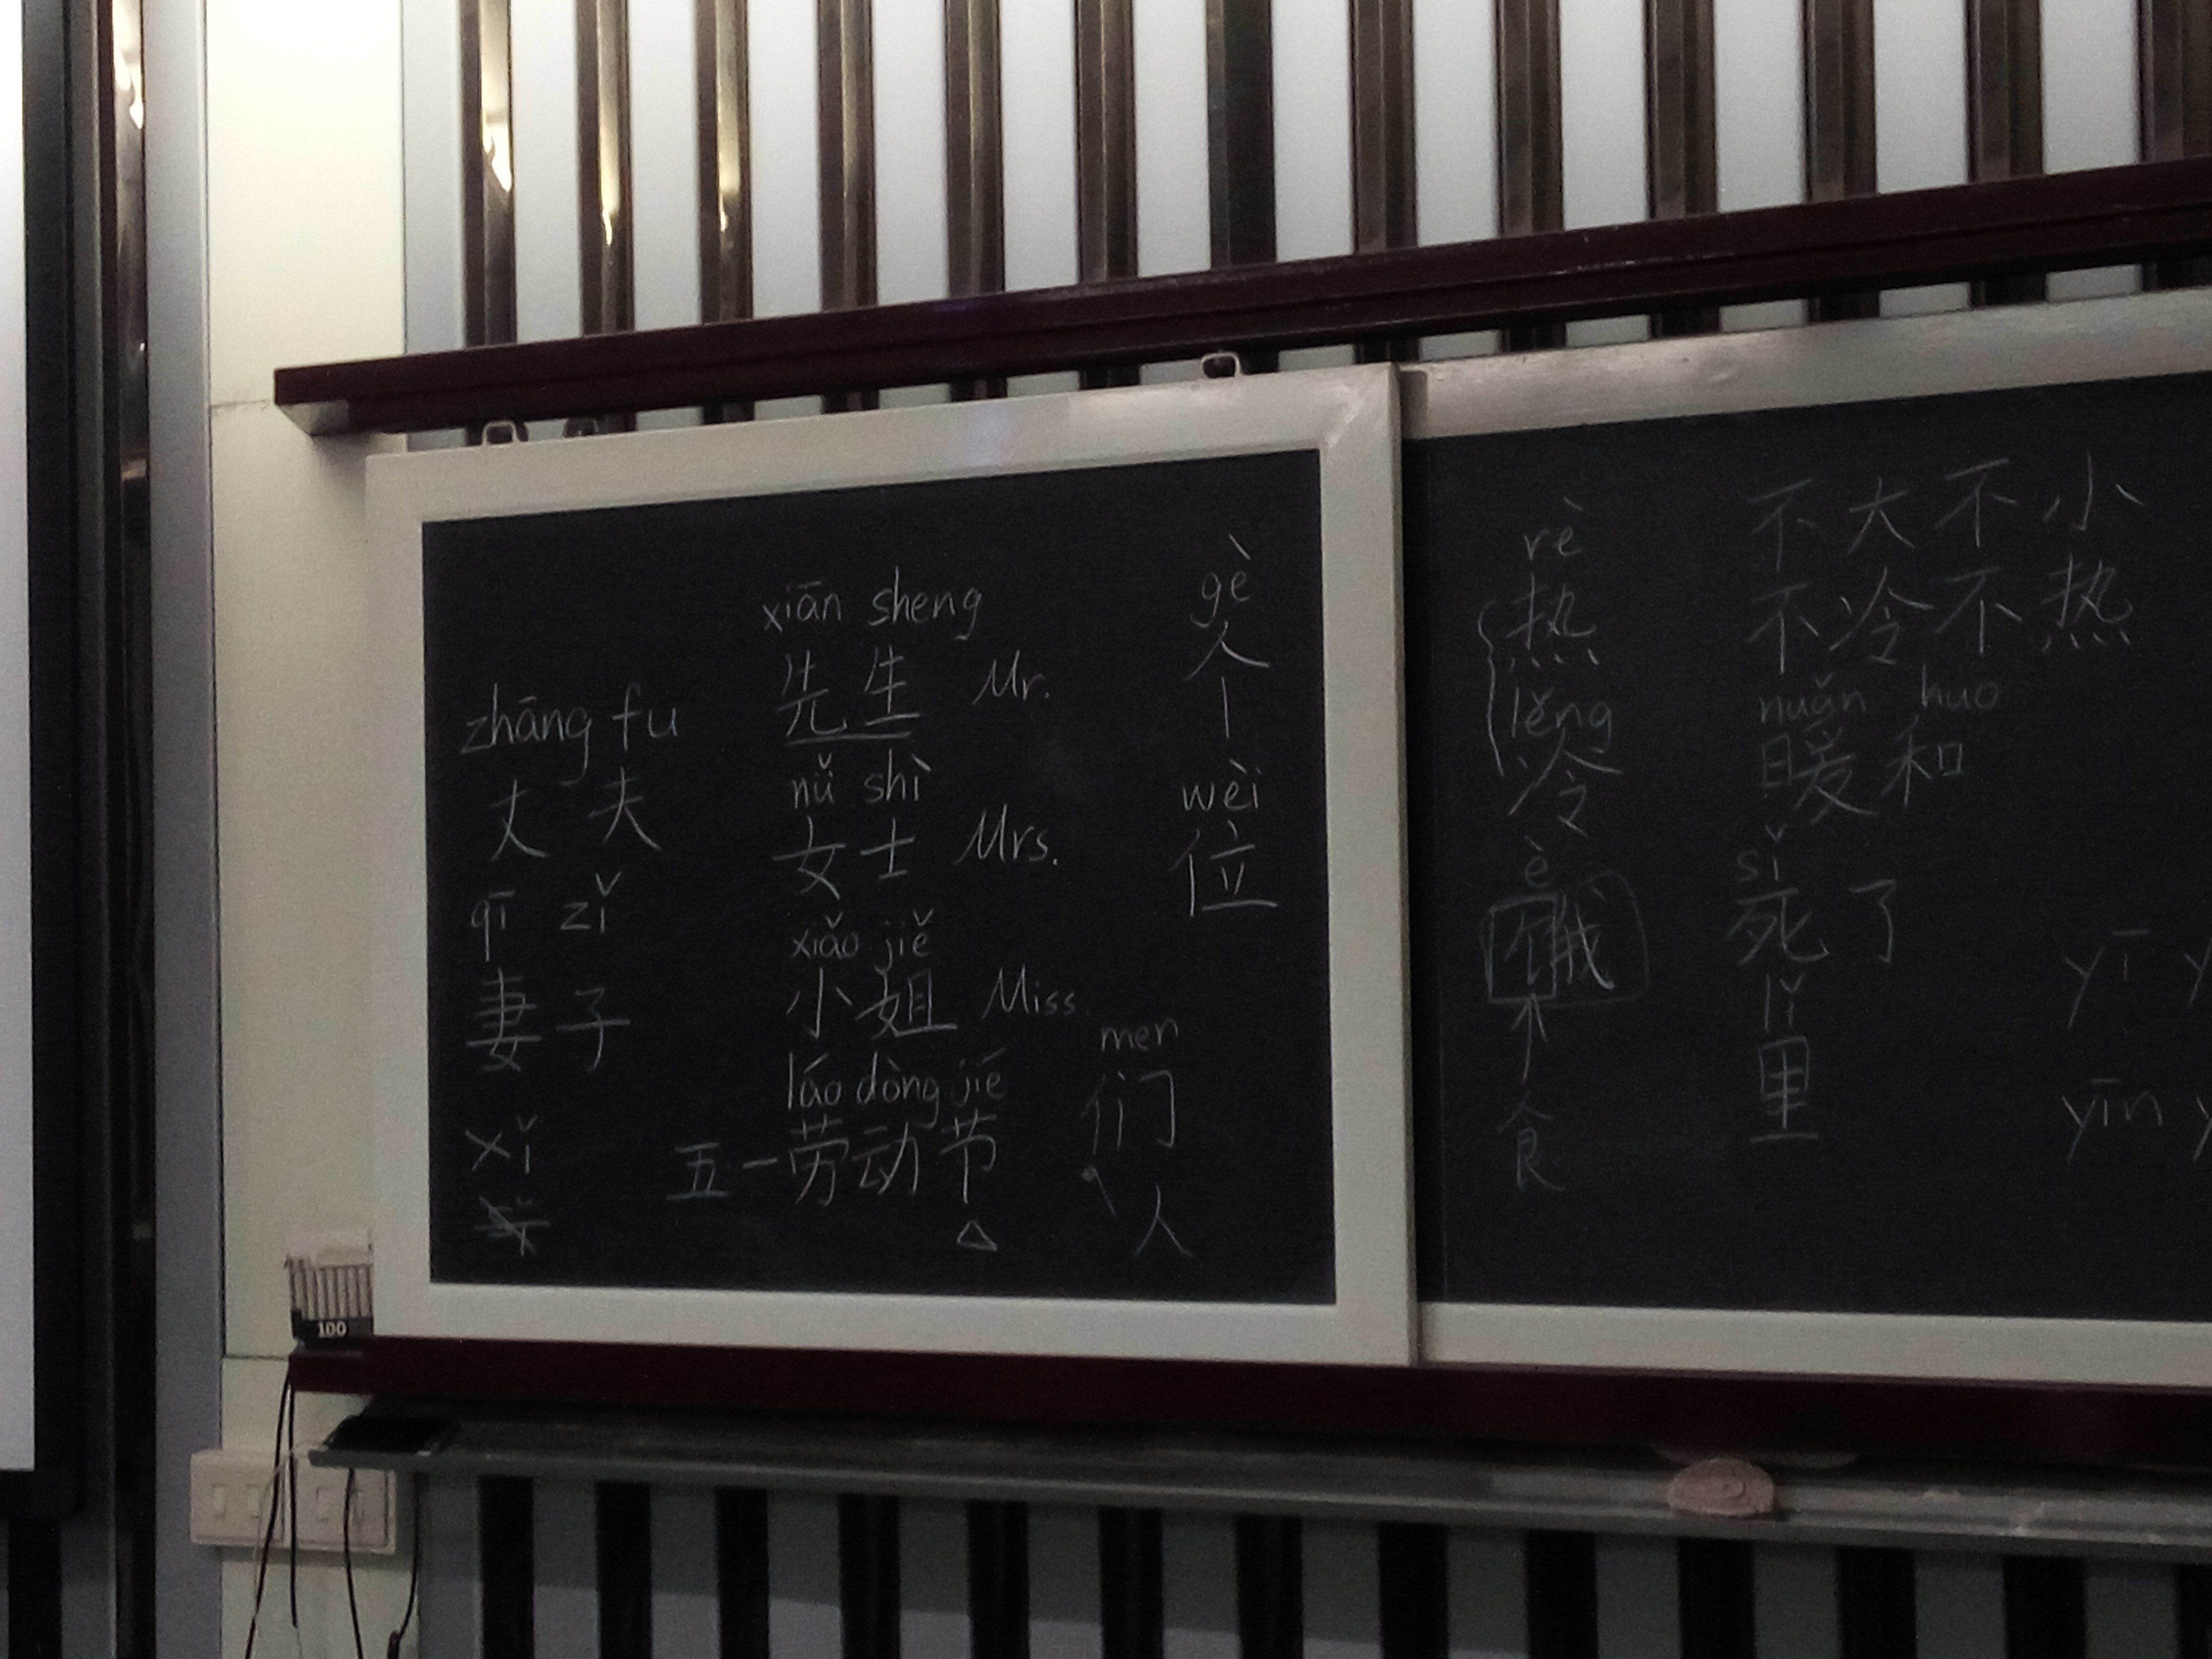 zhāng fu
丈夫
qī zǐ
妻子
xǐ
xiān sheng
先生 Mr.
nǚ shì
女士 Mrs.
xiǎo jiě
小姐 Miss.
láo dòng jié
五一劳动节
gè
个
wèi
位
men
们
人
rè
热
lěng
冷
è
饿
食
不大不小
不冷不热
nuǎn huo
暖和
sǐ
死了
lǐ
里
yī y
yīn y
100